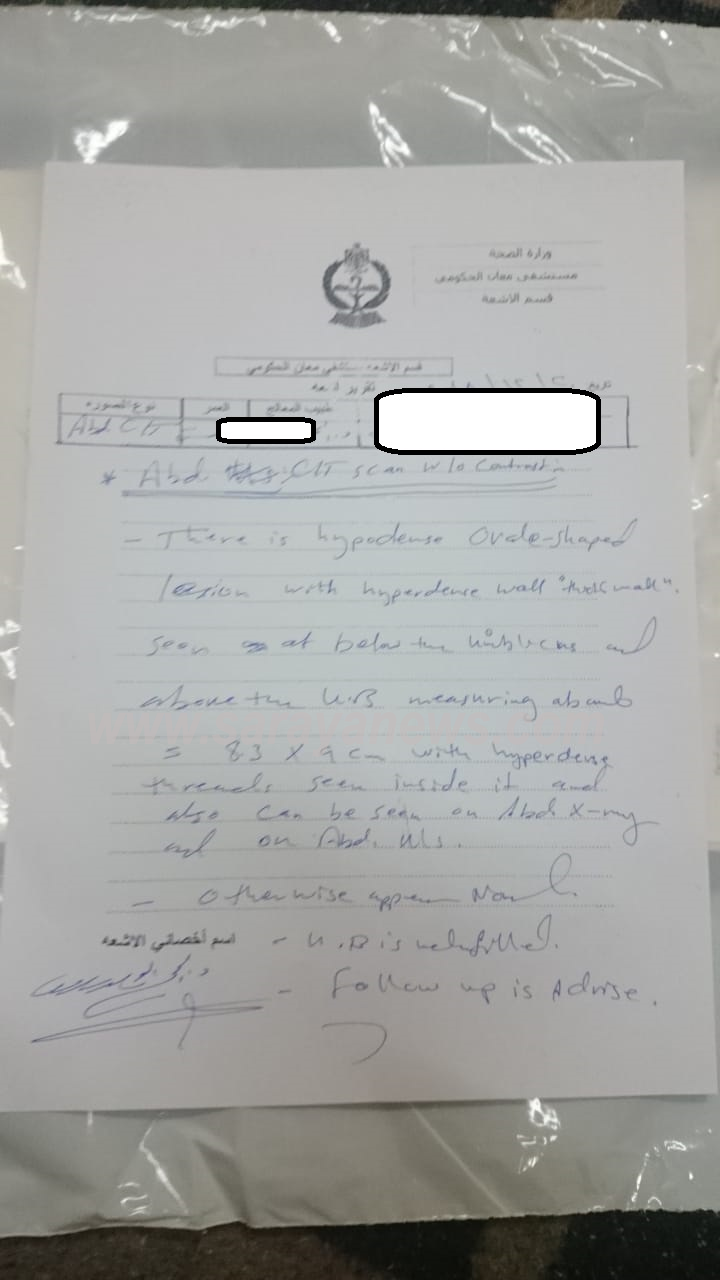 وزارة الصحة
مستشفى معان الحكومي
قسم الاشعة
قسم الاشعه مستشفى معان الحكومي
تقرير اشعه
تاريخ
نوع الصوره العمر طبيب المعالج
Abd C/T
* Abd C/T scan w/o Contrast
- There is hypodense Ovale-shaped
lesion with hyperdense wall "thick wall".
seen at below the Umblicus and
above the U.B measuring about
= 8.3 X 9 cm with hyperdense
threads seen inside it and
also can be seen on Abd X-ray
and on Abd. U/s.
- Otherwise appear Normal.
اسم أخصائي الاشعه
- U.B is well filled.
- Follow up is Advise.